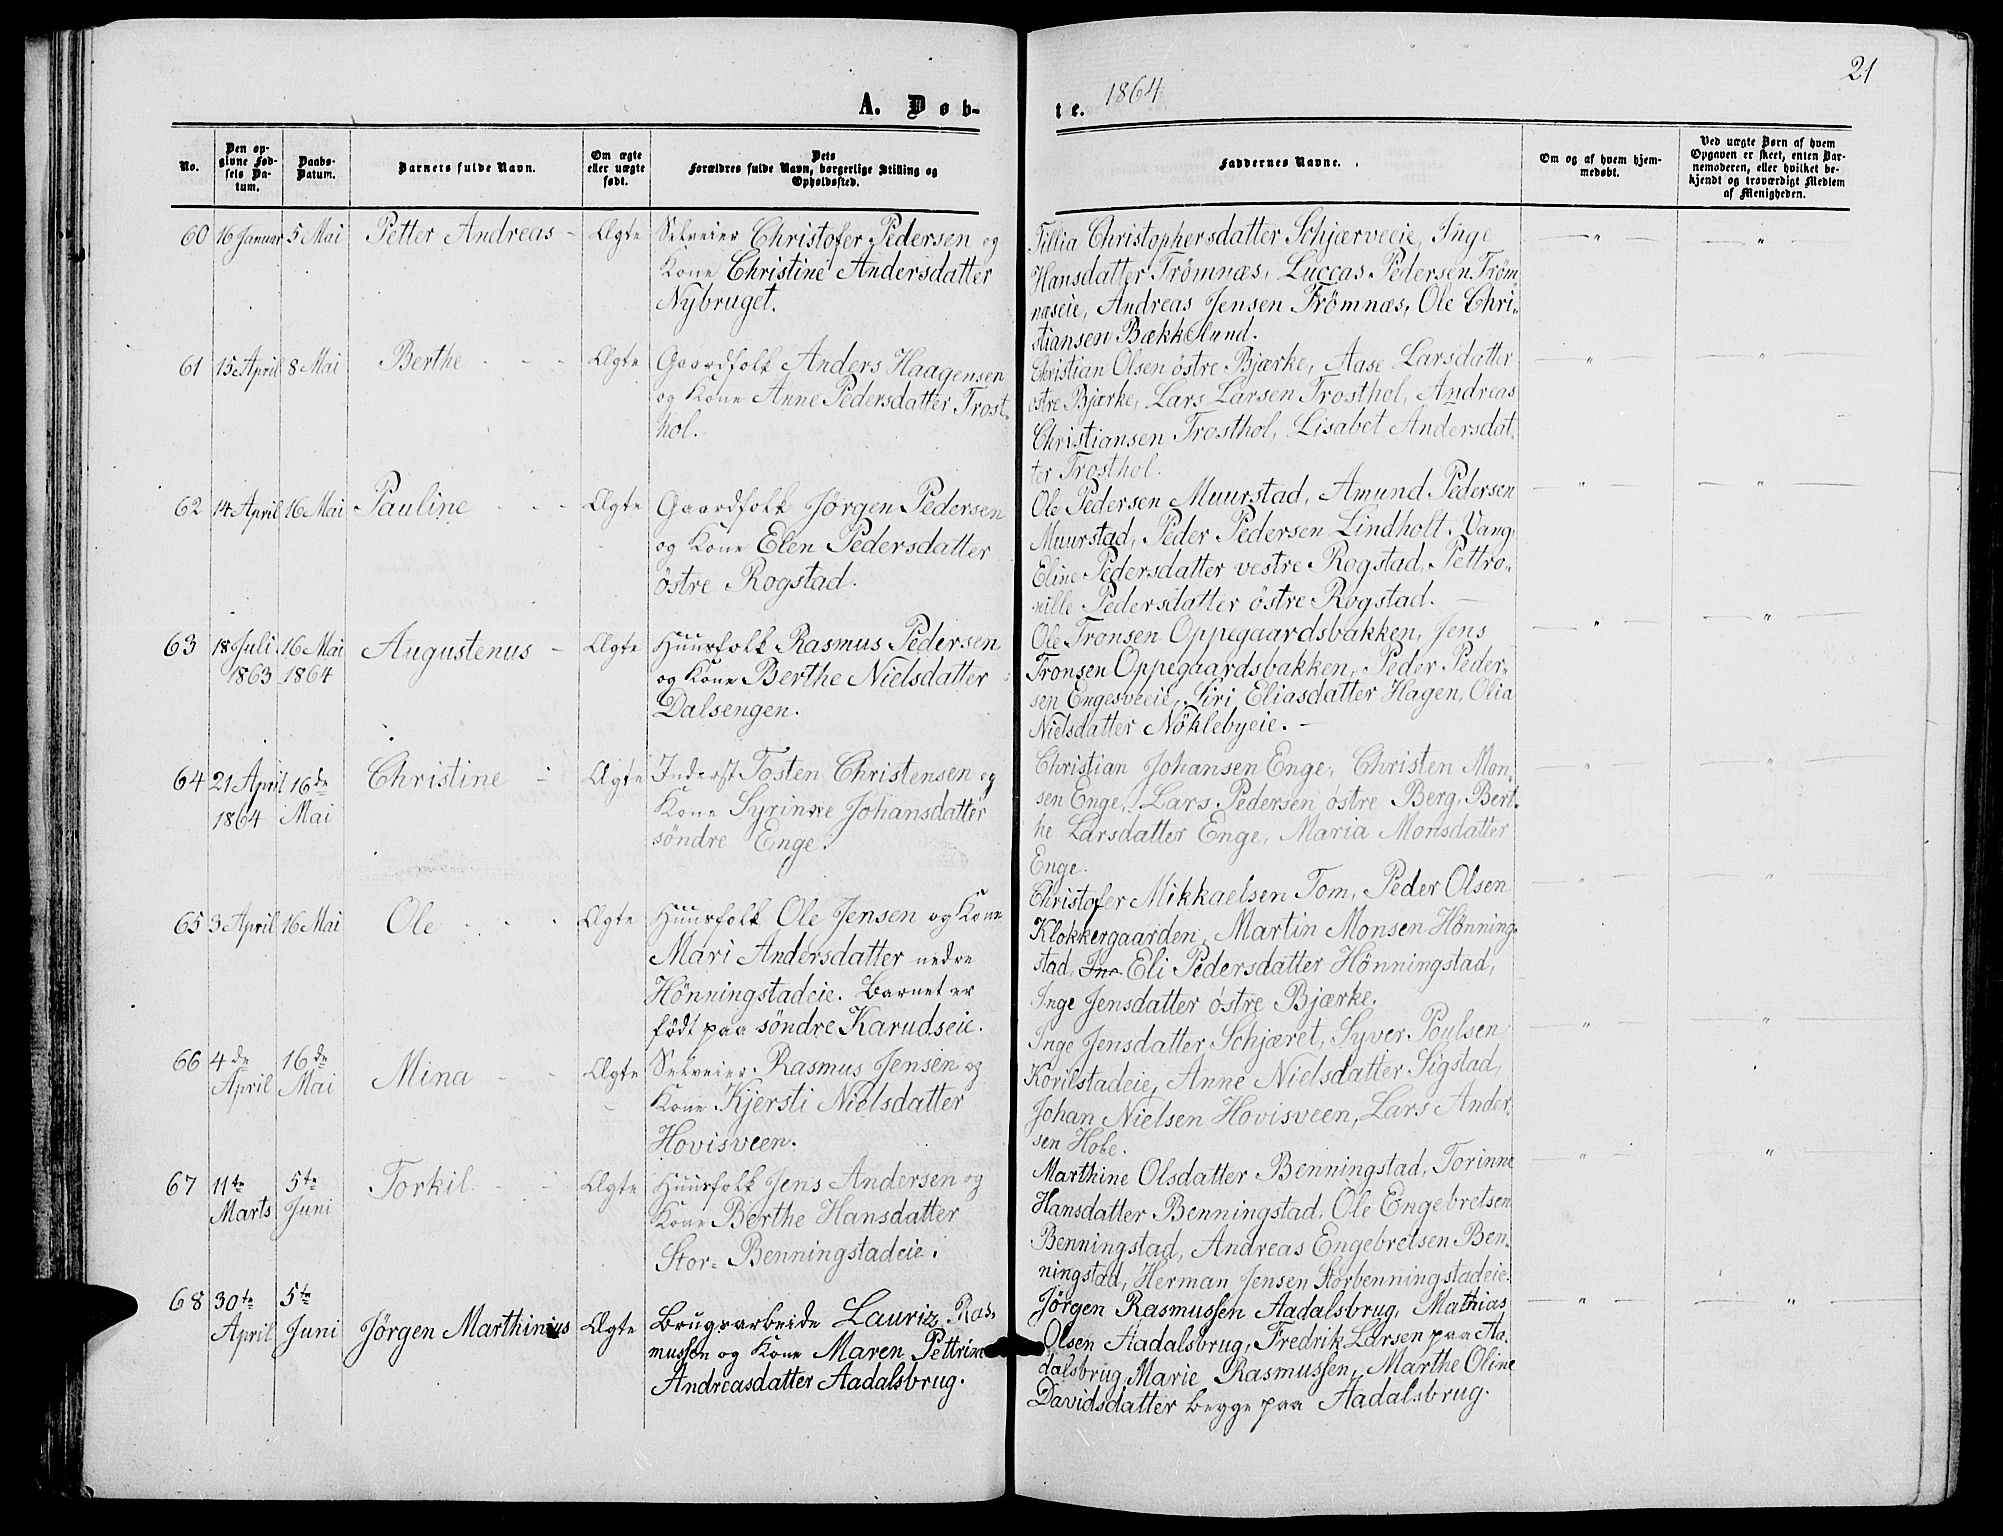 21
A. Døb-
te. 1864
No.
Den op-
givne Fød-
sels Da-
tum.
Daabs-
Datum.
Barnets fulde Navn.
Om ægte
eller uægte
født.
Dets
Forældres fulde Navn, borgerlige Stilling og
Opholdssted.
Faddernes Navne.
Om og af hvem hjem-
medøbt.
Ved uægte Børn af hvem
Opgaven er skeet, enten Bar-
nemoderen, eller hvilket be-
kjendt og troværdigt Medlem
af Menigheden.
60 16 Januar 5 Mai Petter Andreas - Ægte Selveier Christofer Pedersen og
Kone Christine Andersdatter
Nybruget.
Tillia Christophersdatter Schjærveeie, Inge
Hansdatter Frömnæs, Luccas Pedersen Fröm-
næseie, Andreas Jensen Frömnæs, Ole Chri-
stiansen Bækkelund.
61 15 April 8 Mai Berthe - - - Ægte Gaardfolk Anders Haagensen
og Kone Anne Pedersdatter Trost-
hol.
Christian Olsen østre Bjærke, Aase Larsdatter
østre Bjærke, Lars Larsen Trosthol, Andreas
Christiansen Trosthol, Lisabet Andersdat-
ter Trosthol.
62 14 April 16 Mai Pauline - - - Ægte Gaardfolk Jörgen Pedersen
og Kone Elen Pedersdatter
östre Rogstad.
Ole Pedersen Muurstad, Amund Pedersen
Muurstad, Peder Pedersen Lindholt. Vang,
Eline Pedersdatter vestre Rogstad, Pettro-
nille Pedersdatter östre Rogstad.
63 18 Juli 16 Mai Augustenus - Ægte Huusfolk Rasmus Pedersen
1863 1864 og Kone Berthe Nielsdatter
Dalsengen.
Ole Tronsen Oppegaardsbakken, Jens
Tronsen Oppegaardsbakken, Peder Peder-
sen Engesveeie, Siri Eliasdatter Hagen, Olia
Nielsdatter Nöklebyeie. -
64 21 April 16de Christine - Ægte Inderst Tosten Christensen og
1864 Mai Kone Syrinne Johansdatter
söndre Enge.
Christian Johansen Enge, Christen Mon-
sen Enge, Lars Pedersen östre Berg, Bert-
he Larsdatter Enge, Maria Monsdatter
Enge.
65 3 April 16 Mai Ole - - - Ægte Huusfolk Ole Jensen og Kone
Mari Andersdatter nedre
Hönningstadeie. Barnet er
födt paa söndre Karudseie.
Christofer Mikkaelsen Tom, Peder Olsen
Klokkergaarden, Martin Monsen Hönning-
stad, Ine Eli Pedersdatter Hönningstad,
Inge Jensdatter östre Bjærke.
66 4de 16de Mina - - Ægte Selveier Rasmus Jensen og
April Mai Kone Kjersti Nielsdatter
Hovisveen.
Inge Jensdatter Schjæret, Syver Poulsen
Korilstadeie, Anne Nielsdatter Sigstad,
Johan Nielsen Hovisveen, Lars Ander-
sen Hobe.
67 11te 5te Torkil - - Ægte Huusfolk Jens Andersen og
Marts Juni Kone Berthe Hansdatter
Stor- Benningstadeie.
Marthine Olsdatter Benningstad, Torinne
Hansdatter Benningstad, Ole Engebretsen
Benningstad, Andreas Engebretsen Ben-
ningstad, Herman Jensen Storbenningstadeie.
68 30te 5te
April Juni Jörgen Marthinius Ægte Brugsarbeide Lauriz Ras-
mussen og Kone Maren Pettrine
Andreasdatter Aadalsbrug.
Jörgen Rasmussen Aadalsbrug, Mathias
Olsen Aadalsbrug, Fredrik Larsen paa Aa-
dalsbrug, Marie Rasmussen, Marthe Oline
Davidsdatter begge paa Aadalsbrug.